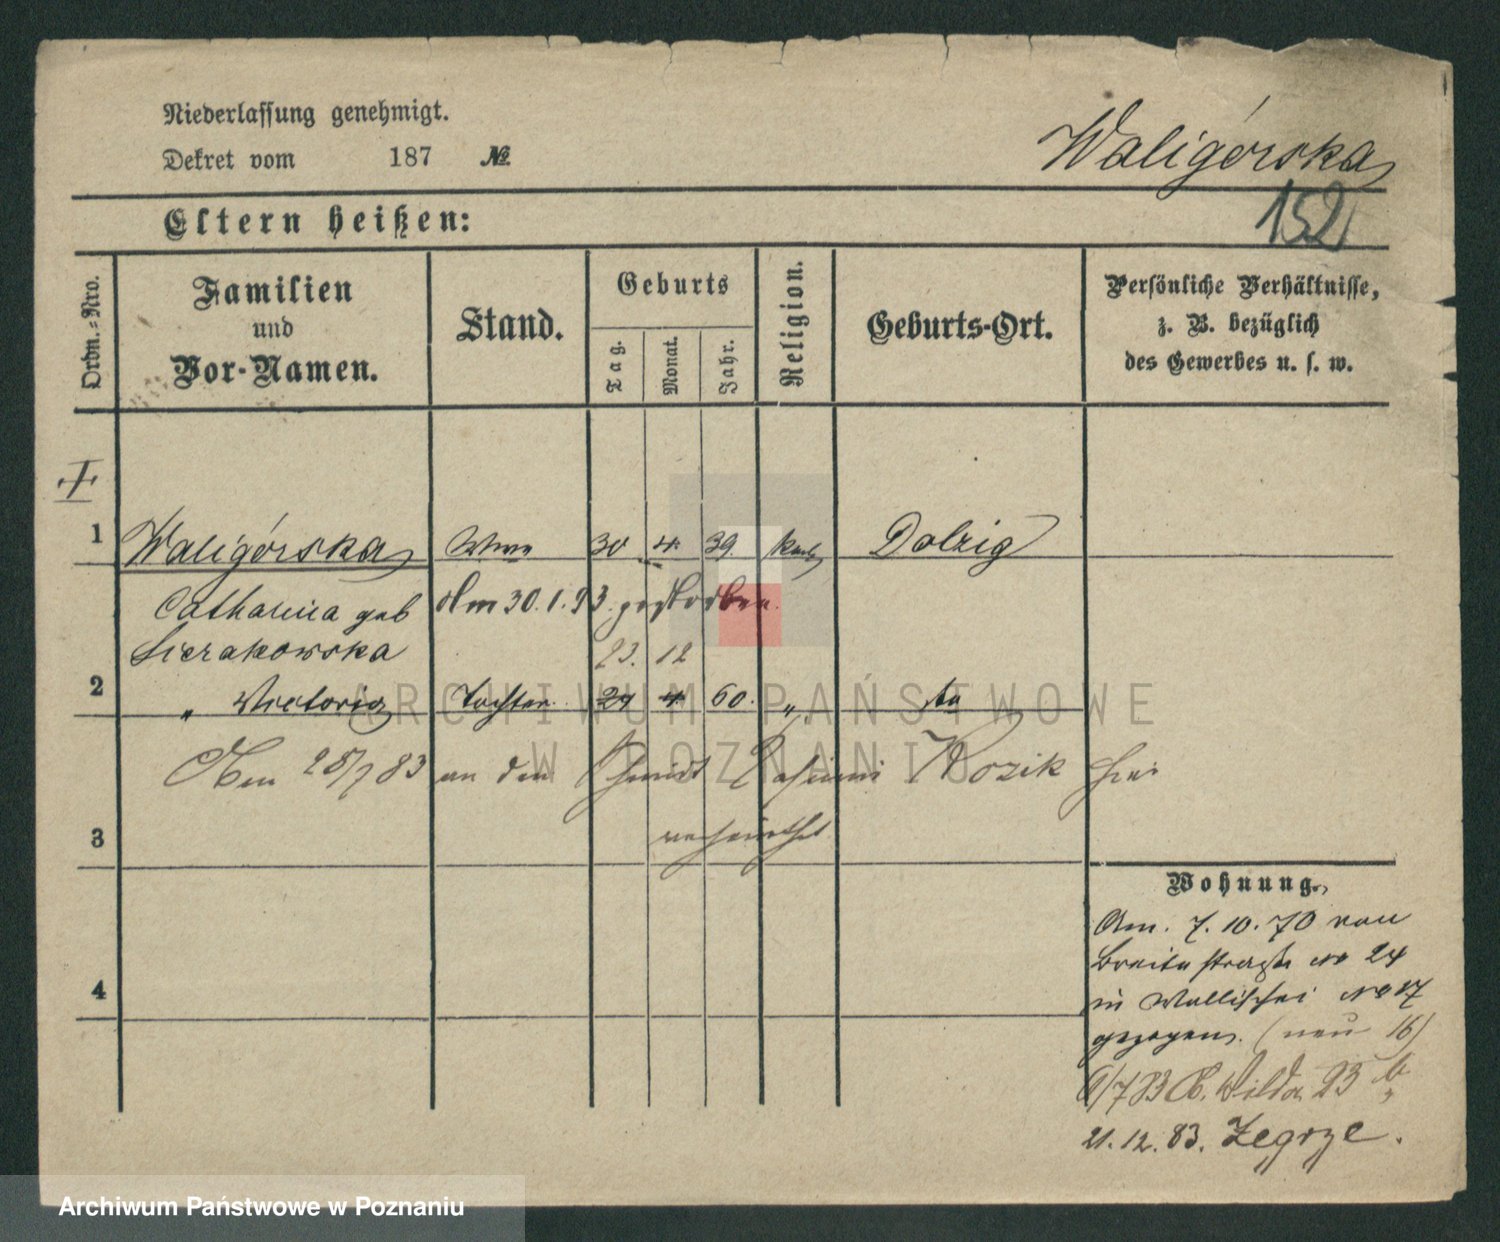 Niederlassung genehmigt.
Dekret vom 187 №
Waligórska
152
Eltern heißen:
Ordn.-Nro.
Familien
und
Vor-Namen.
Stand.
Geburts
Tag.
Monat.
Jahr.
Religion.
Geburts-Ort.
Persönliche Verhältnisse,
z. B. bezüglich
des Gewerbes u. s. w.
1 Waligórska Wwe 30 4. 39. kath Dolzig
Catharina geb
Am 30.1.93. gestorben.
Sierakowska
23. 12
2 " Victoria Tochter 24 4 60. " do
28/7 83 an den Schmidt Kozik hier
3 verheirathet
4
Wohnung.
Am. 7. 10. 70 von
Breitestraße No 24
in Wallischei No 17
gezogen. (neu 16)
/7 83 Wilda 23 b
21. 12. 83. Zegrze.
ARCHIWUM PAŃSTWOWE
W POZNANIU
Archiwum Państwowe w Poznaniu